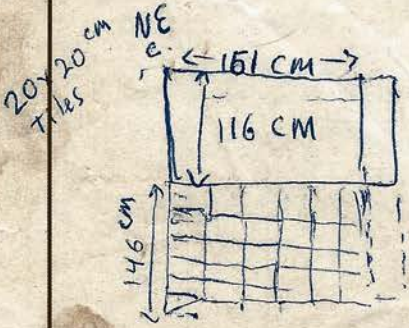 20x20 cm
Tiles
NE
C.
161 CM
116 CM
146 cm